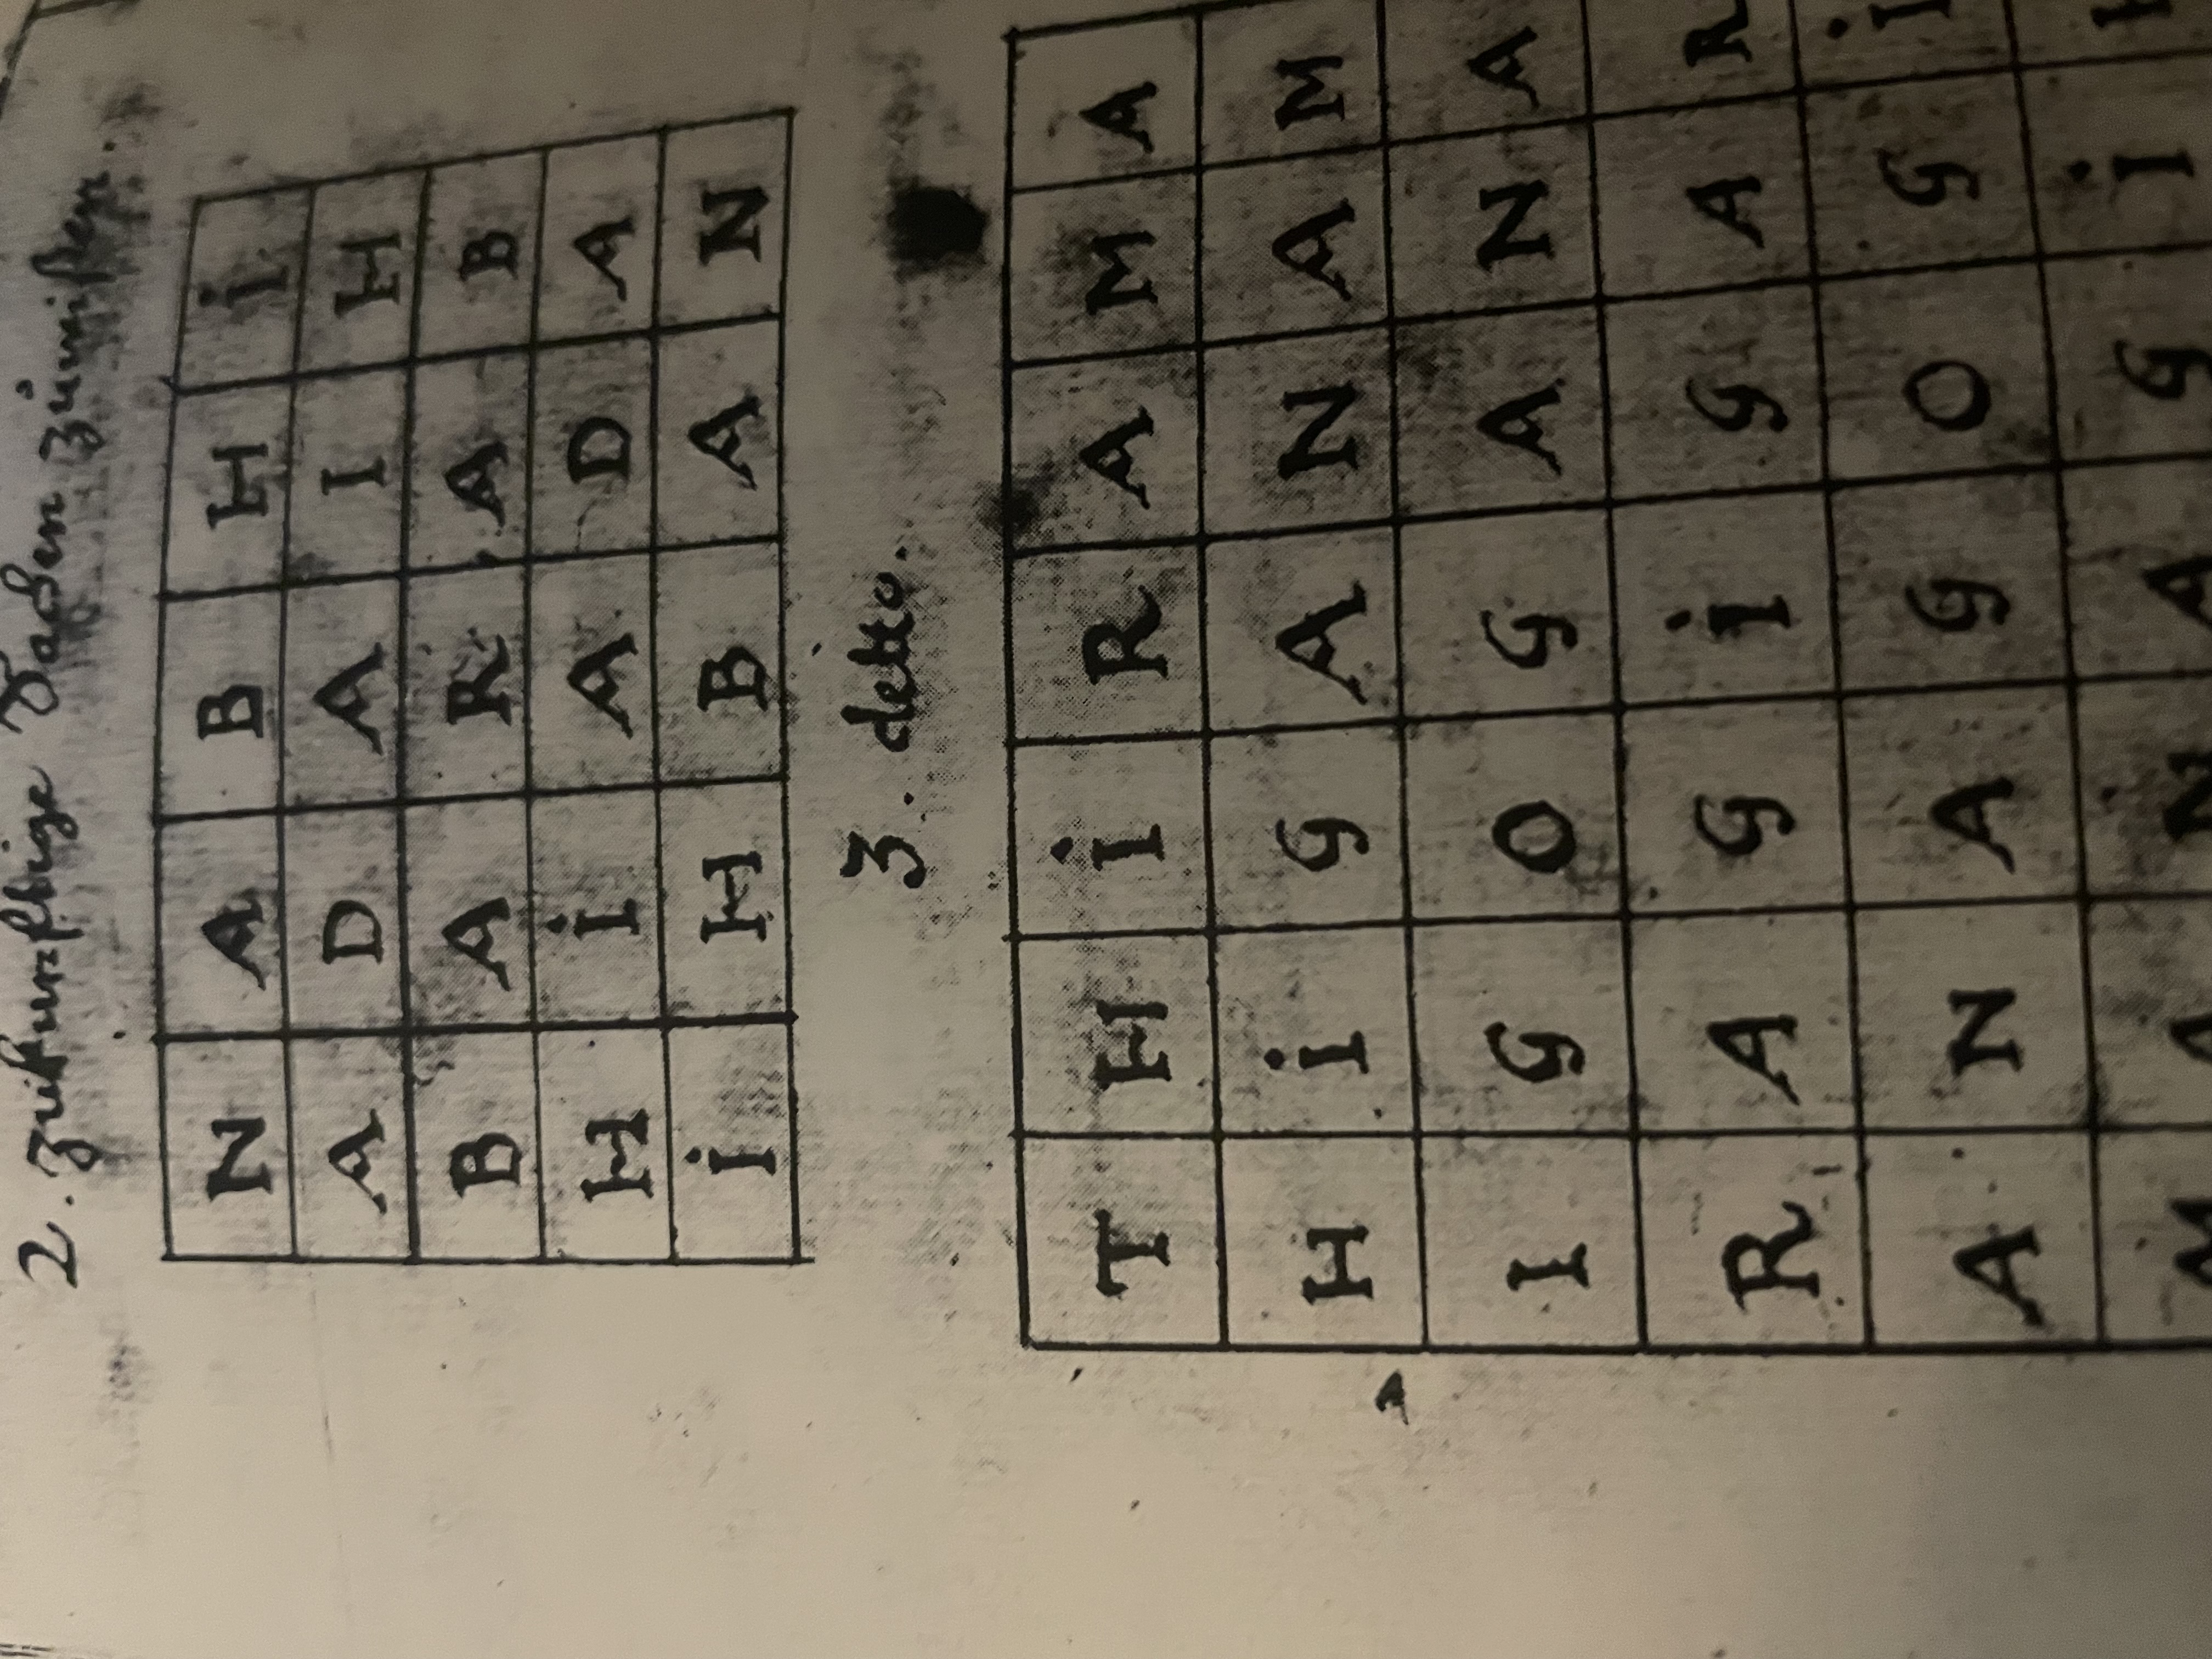 2. Zukünftige Sachen zu wissen.
N A B H i
A D A I H
B A R A B
H i A D A
i H B A N
3. detto.
T H i R A M A
H i G A N A M
I G O G A N A
R A G i G A R
A N A G O G i
M A N A G i H